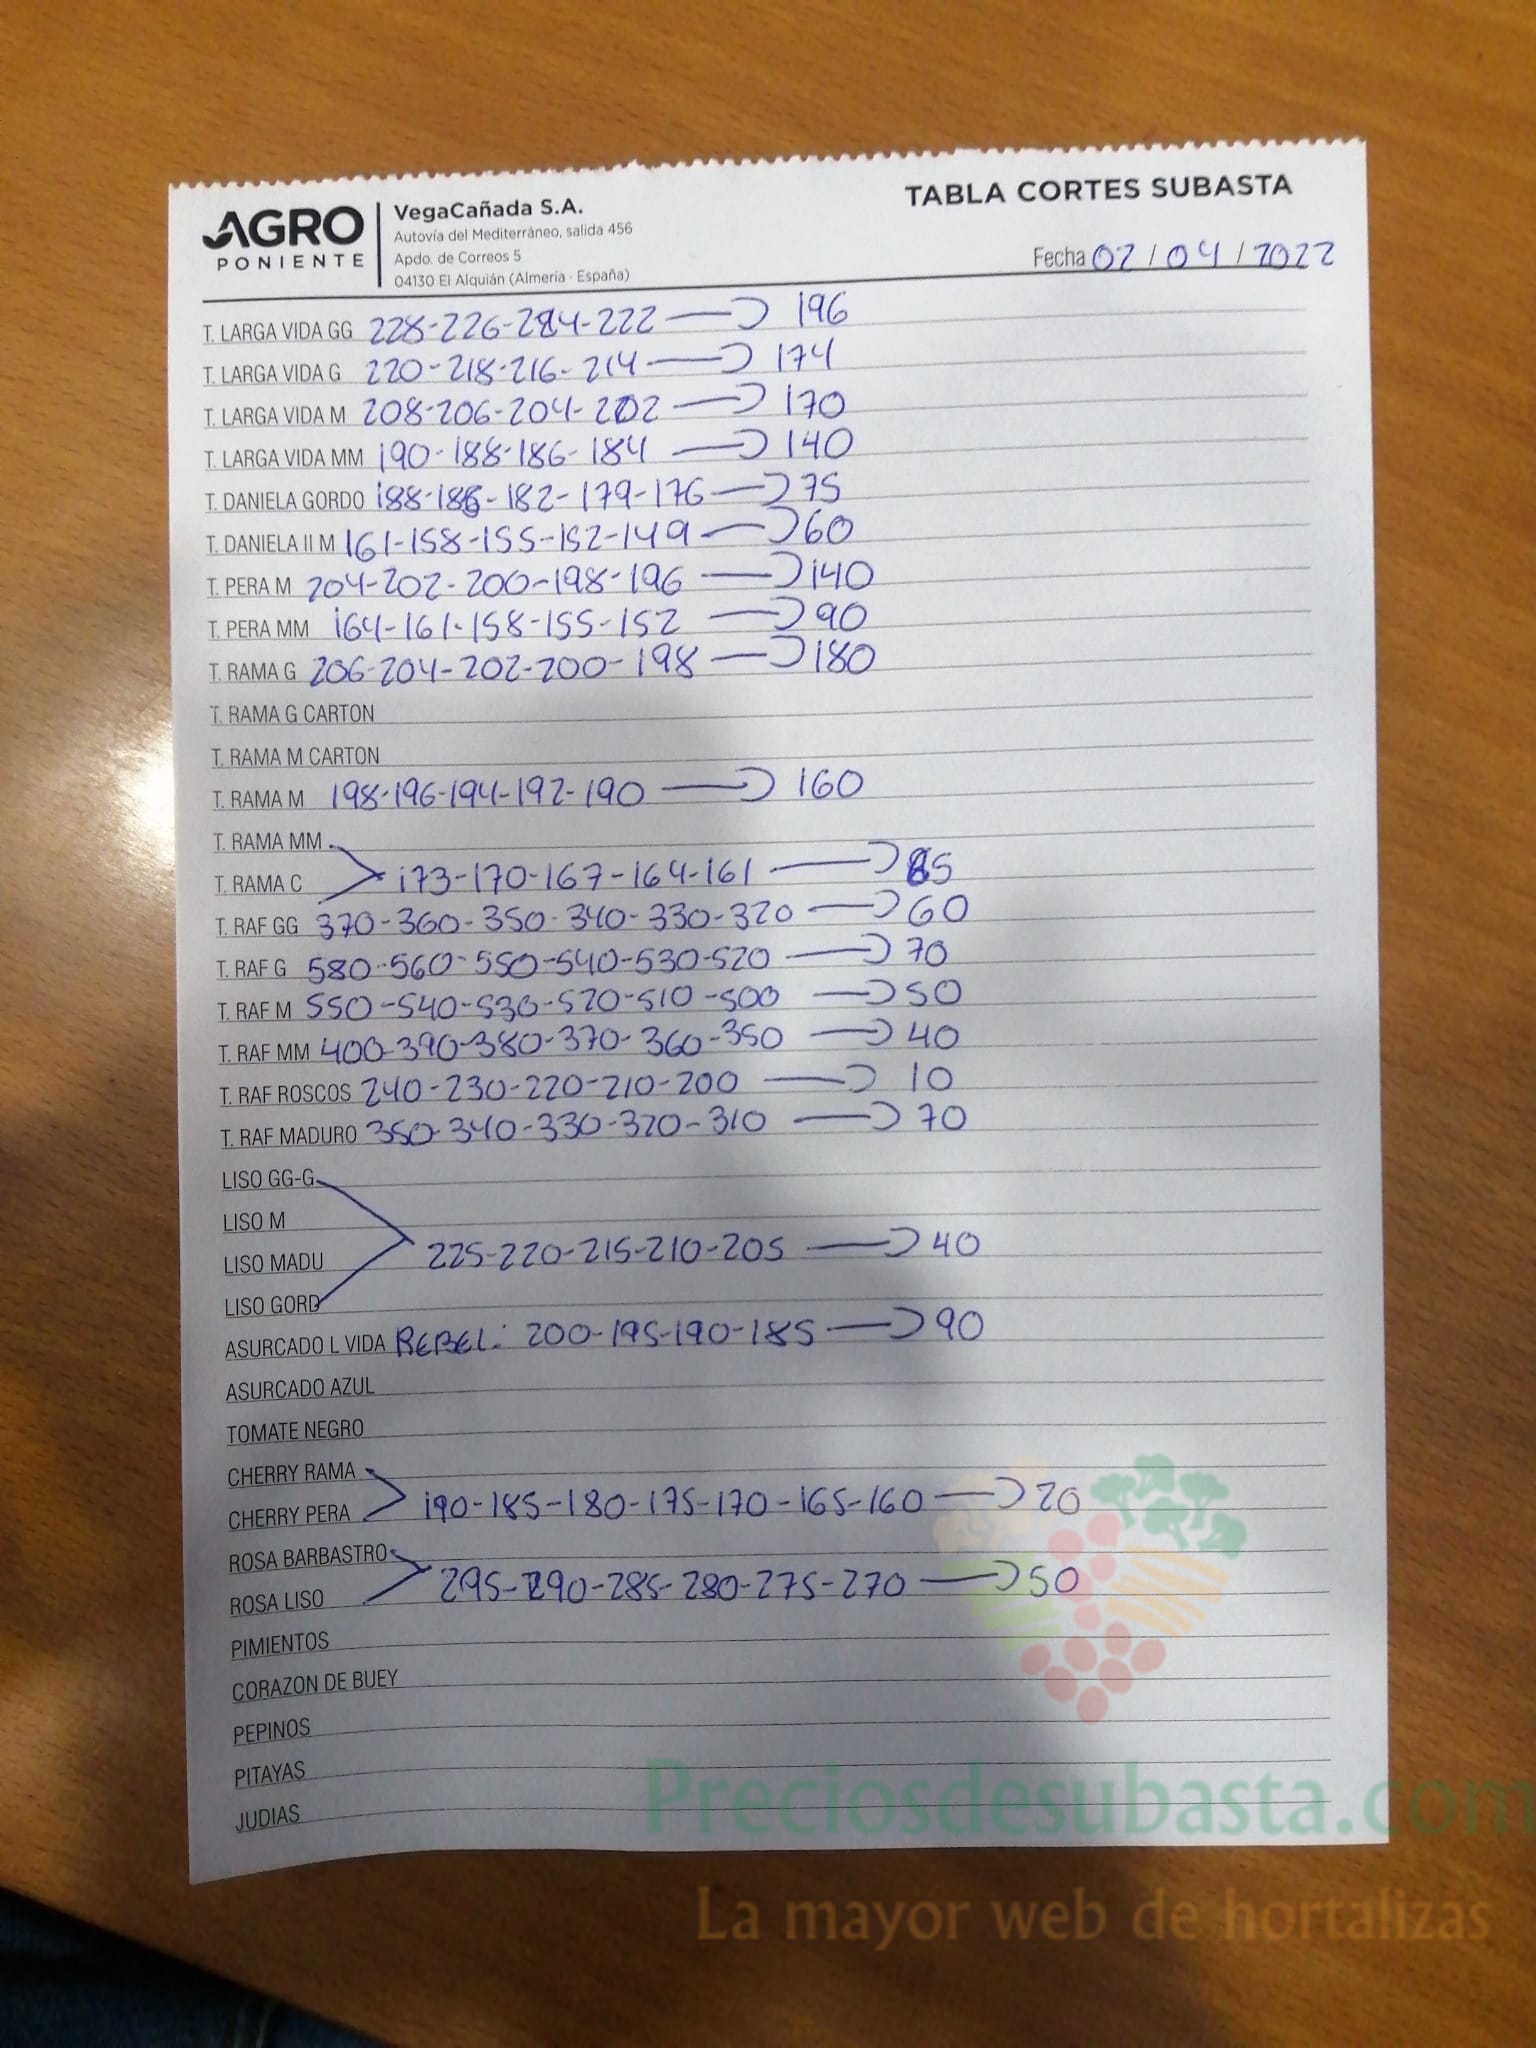 AGRO
PONIENTE
VegaCañada S.A.
Autovía del Mediterráneo, salida 456
Apdo. de Correos 5
04130 El Alquián (Almería · España)
TABLA CORTES SUBASTA
Fecha 02/04/2022
T. LARGA VIDA GG 228-226-224-222 → 196
T. LARGA VIDA G 220-218-216-214 → 174
T. LARGA VIDA M 208-206-204-202 → 170
T. LARGA VIDA MM 190-188-186-184 → 140
T. DANIELA GORDO 188-185-182-179-176 → 75
T. DANIELA II M 161-158-155-152-149 → 60
T. PERA M 204-202-200-198-196 → 140
T. PERA MM 164-161-158-155-152 → 90
T. RAMA G 206-204-202-200-198 → 180
T. RAMA G CARTON
T. RAMA M CARTON
T. RAMA M 198-196-194-192-190 → 160
T. RAMA MM
T. RAMA C 173-170-167-164-161 → 85
T. RAF GG 370-360-350-340-330-320 → 60
T. RAF G 580-560-550-540-530-520 → 70
T. RAF M 550-540-530-520-510-500 → 50
T. RAF MM 400-390-380-370-360-350 → 40
T. RAF ROSCOS 240-230-220-210-200 → 10
T. RAF MADURO 350-340-330-320-310 → 70
LISO GG-G
LISO M
LISO MADU 225-220-215-210-205 → 40
LISO GORD
ASURCADO L VIDA REBEL: 200-195-190-185 → 90
ASURCADO AZUL
TOMATE NEGRO
CHERRY RAMA
CHERRY PERA 190-185-180-175-170-165-160 → 20
ROSA BARBASTRO
ROSA LISO 295-290-285-280-275-270 → 50
PIMIENTOS
CORAZON DE BUEY
PEPINOS
PITAYAS
JUDIAS
Preciosdesubasta.com
La mayor web de hortalizas